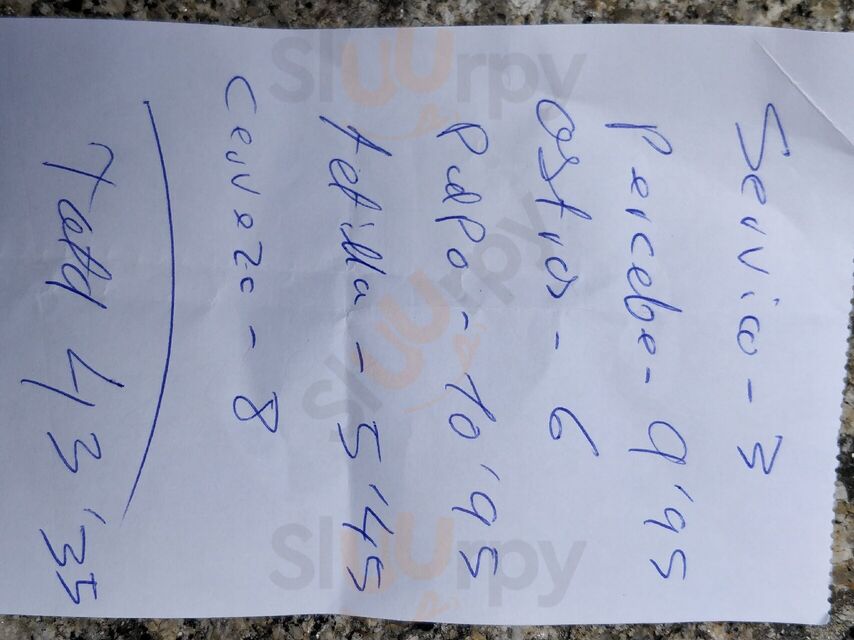 Servicio - 3
Percebe - 9'95
Ostras - 6
Pulpo - 10'95
tetilla - 5'45
Cerveza - 8
Total 43'35
Sluurpy
Sluurpy
Sluurpy